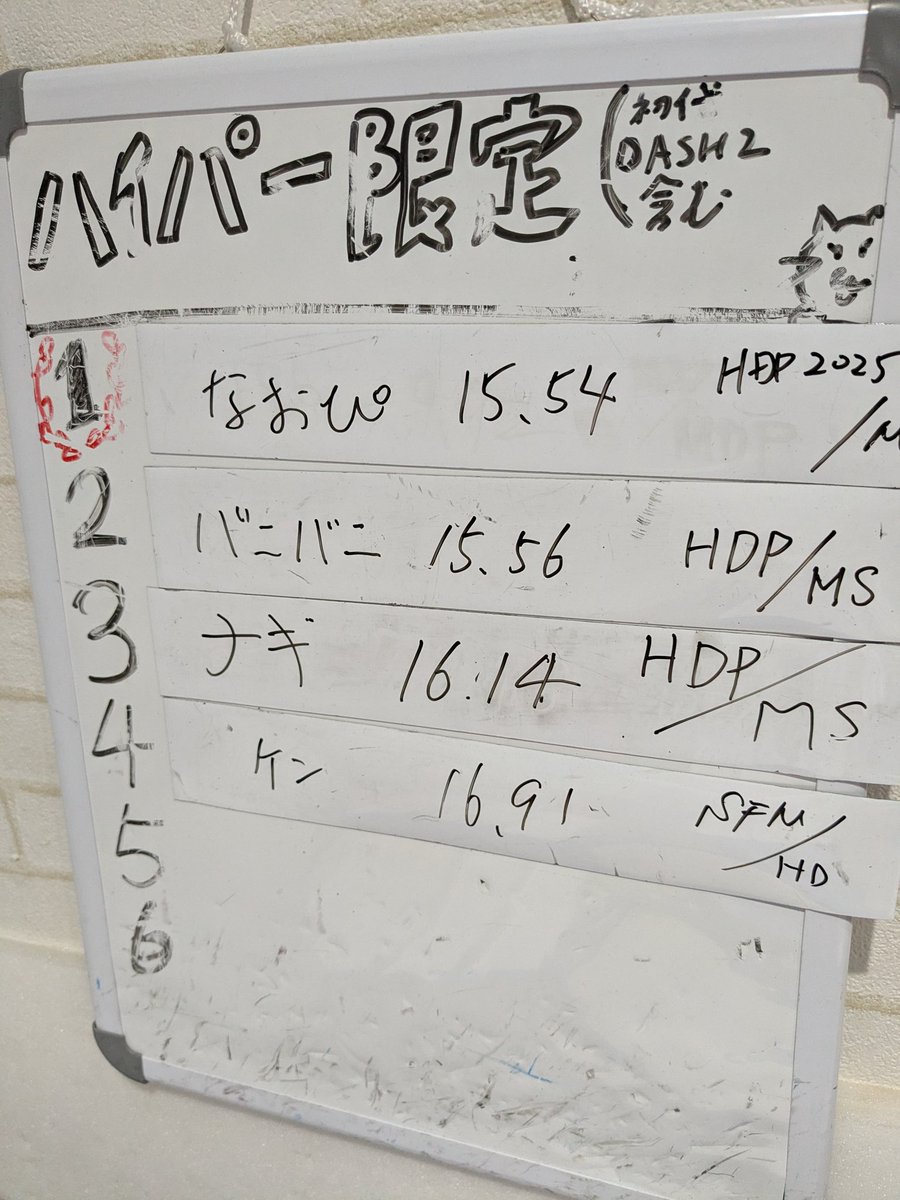 ハイパー限定(初代
DASH2
含む
1 なおぴ 15.54 HDP2025
/M
2 バニバニ 15.56 HDP/MS
3 ナギ 16.14 HDP/MS
4 ケン 16.91 SFM/HD
5
6